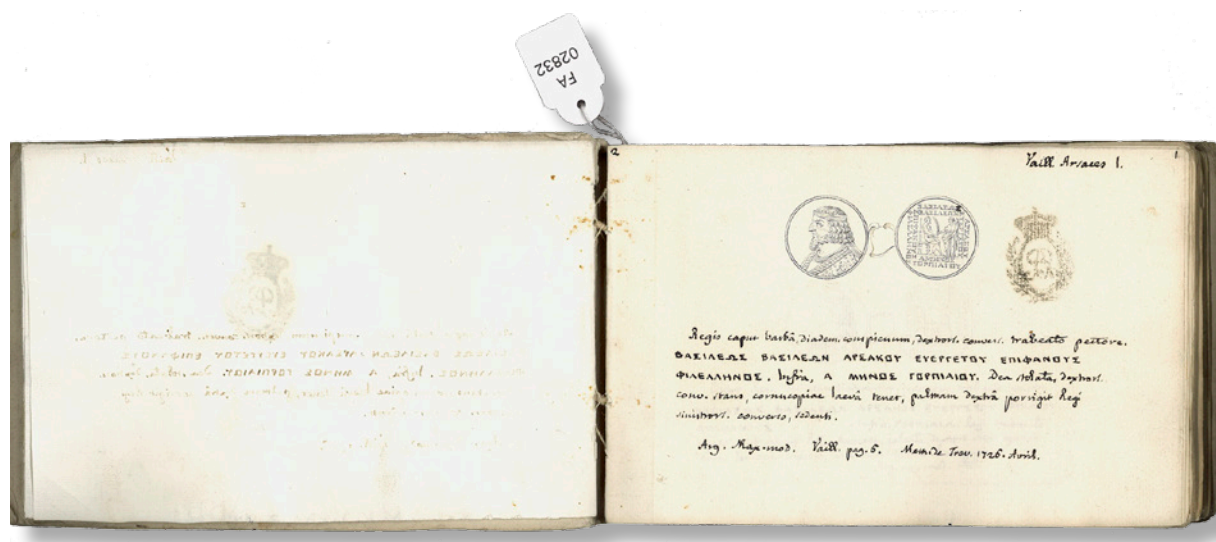 FA
02832
2
1
Vaill Arsaces 1.
Regis caput barbâ, diadem. conspicuum, dextrors. convers. trabeato pectore.
ΒΑΣΙΛΕΩΣ ΒΑΣΙΛΕΩΝ ΑΡΣΑΚΟΥ ΕΥΕΡΓΕΤΟΥ ΕΠΙΦΑΝΟΥΣ
ΦΙΛΕΛΛΗΝΟΣ. Infra, Α ΜΗΝΟΣ ΓΟΡΠΙΑΙΟΥ. Dea stolata, dextrors.
conv. stans, cornucopiae laevâ tenet, palmam dextrâ porrigit Regi
sinistrors. converso, sedenti.
Arg. Max. mod. Vaill. pag. 5. Mem. de Trev. 1726. Avril.